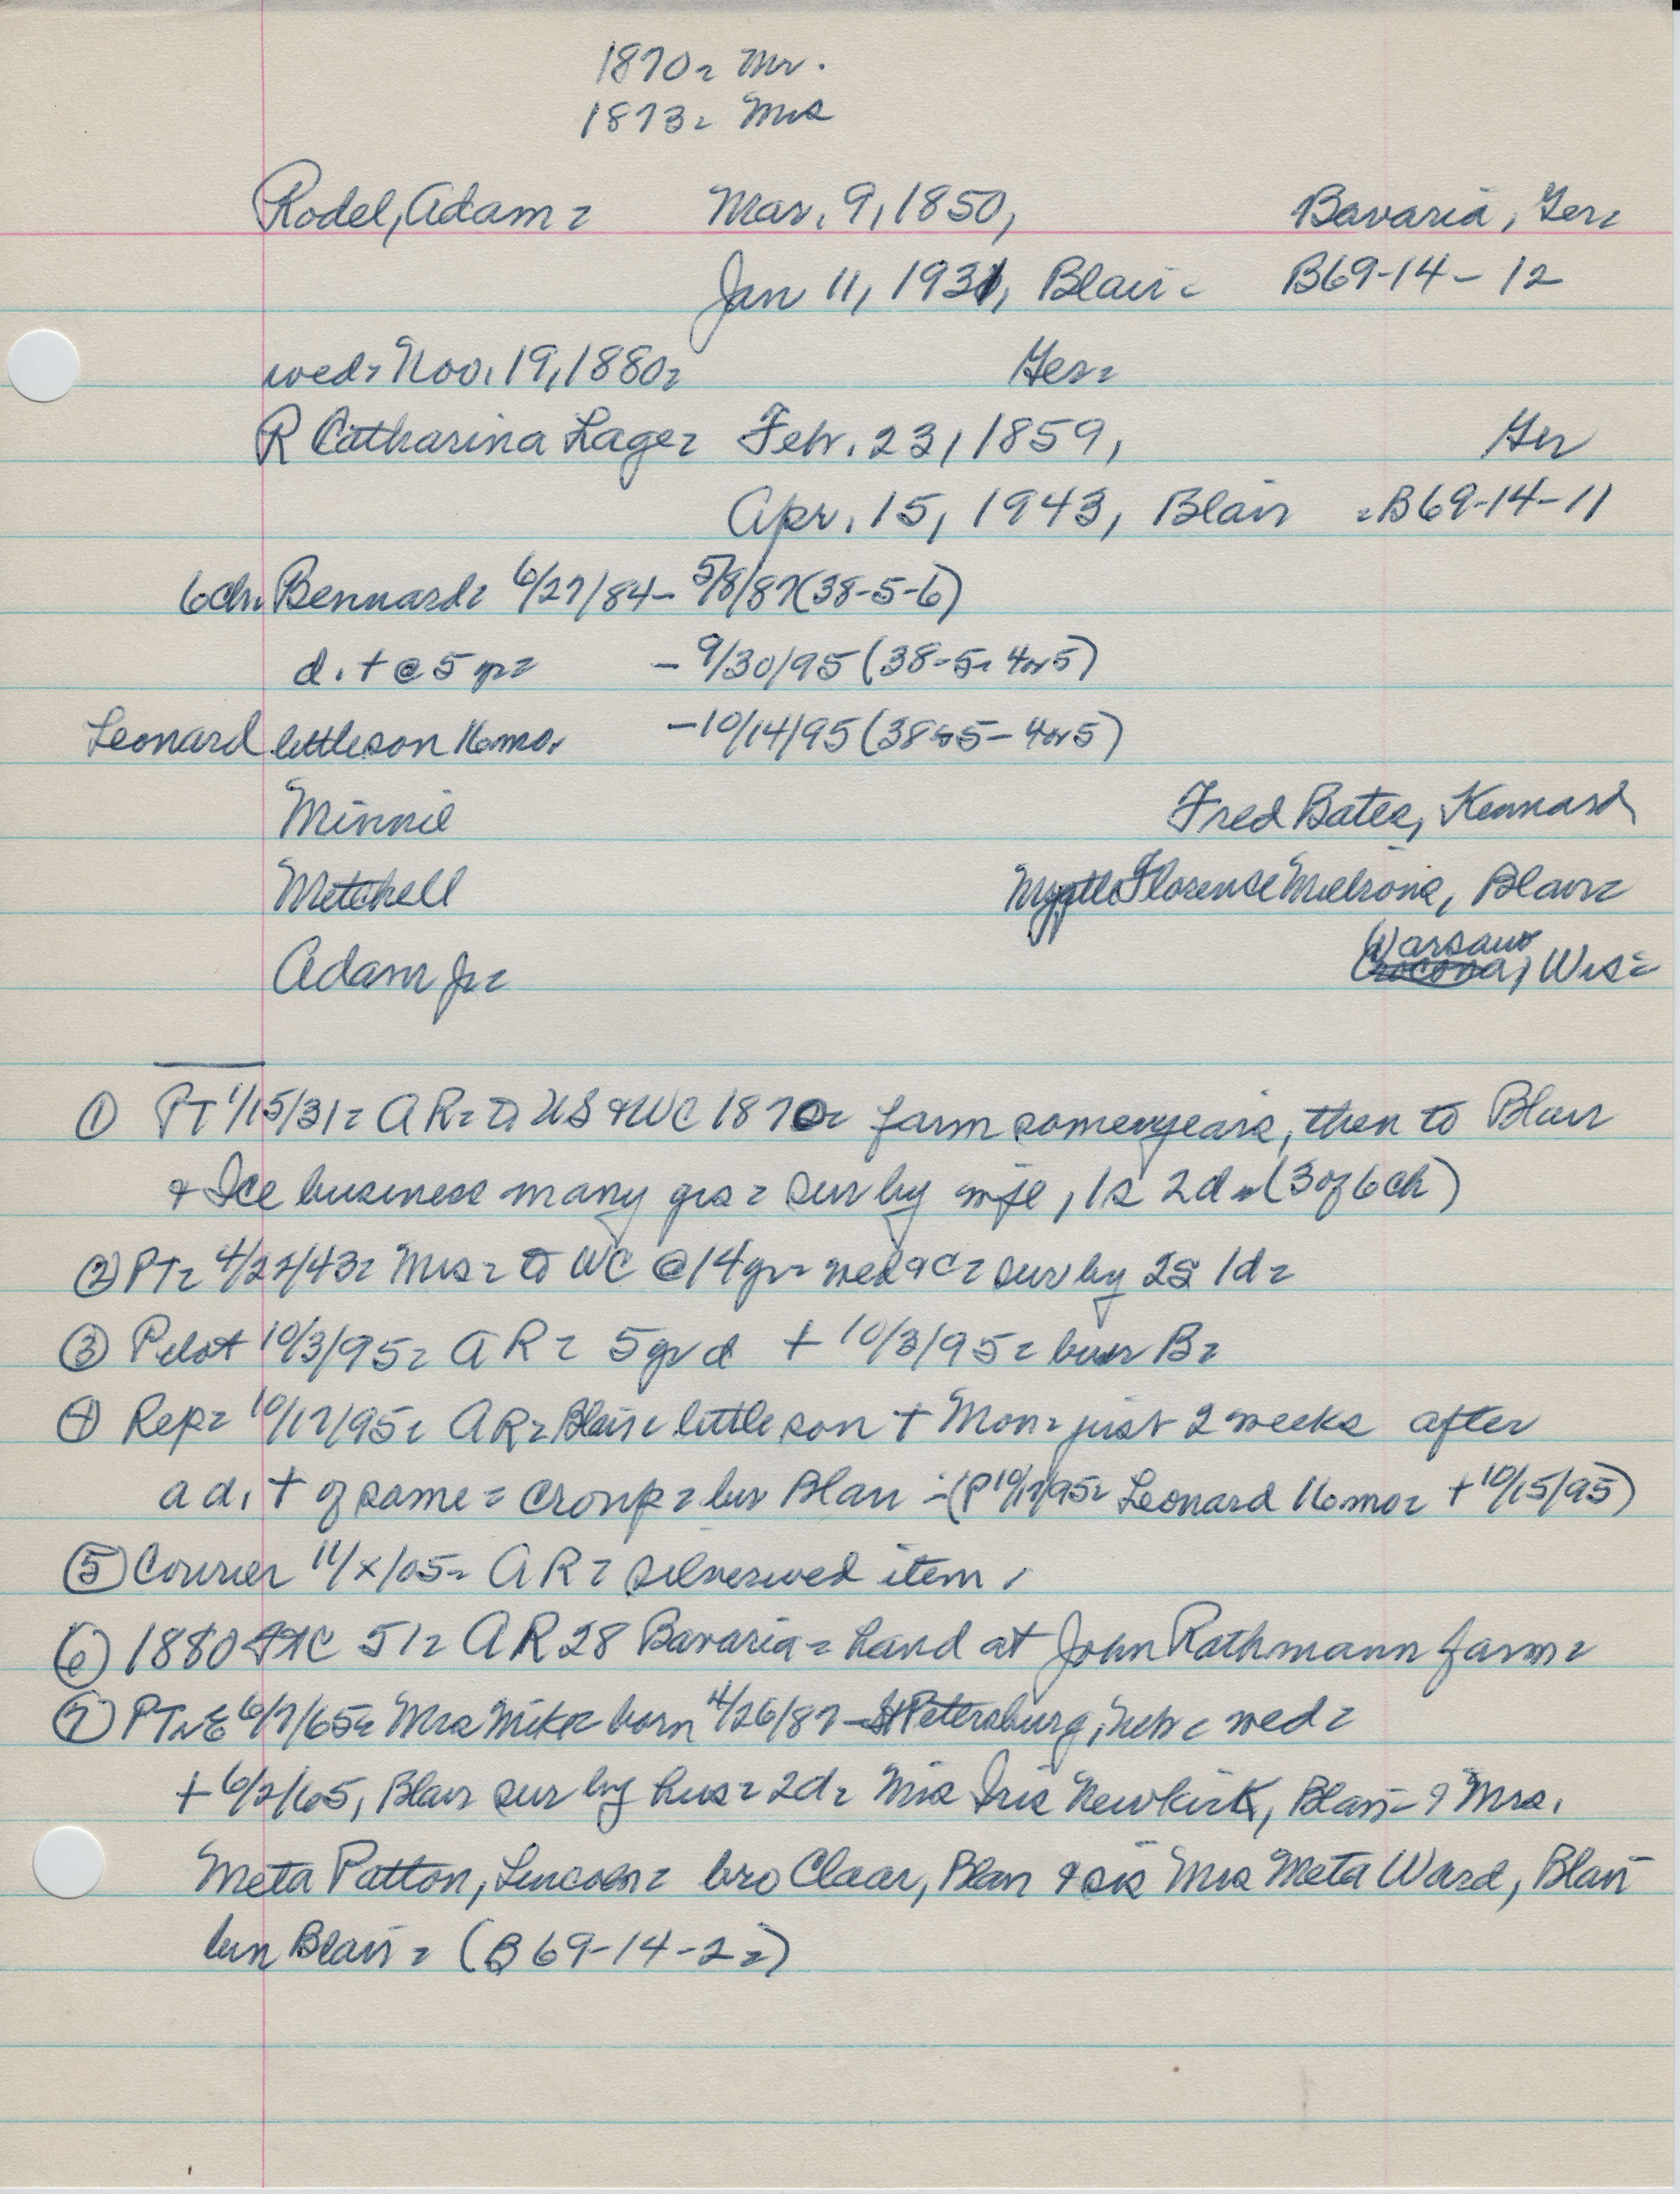 1870= Mr.
1873= Mrs
Rodel, Adam= Mar. 9, 1850, Bavaria, Ger=
Jan 11, 1931, Blair= B69-14-12
wed= Nov. 19, 1880= Ger=
R Catharina Lage= Feb. 23, 1859, Ger
Apr. 15, 1943, Blair =B69-14-11
6ch. Bennard= 6/27/84- 5/8/87(38-5-6)
d. + @ 5 yr= - 9/30/95 (38-5= 4or5)
Leonard little son 16mo. -10/14/95 (38=5-4or5)
Minnie Fred Bates, Kennard
Mitchell Florence Milrone, Blair=
Adam Jr= Warsaw, Wis=
① PT 1/15/31= AR= to US & WC 1870= farm some years, then to Blair
& Ice business many yrs= sur by wife, 1s 2d =(3 of 6 ch)
② PT= 4/22/43= Mrs= to WC @ 14 yr= wed &c= sur by 2s 1d=
③ Pilot 10/3/95= AR= 5yr d + 10/3/95= bur B=
④ Rep= 10/17/95= AR= Blair= little son + Mon= just 2 weeks after
a d. + of same= croup= bur Blair =(P 10/17/95= Leonard 16mo= + 10/15/95)
⑤ Courier 11/x/05= AR= silverwed item.
⑥ 1880 51= AR 28 Bavaria= hand at John Rathmann farm=
⑦ PT&E 6/7/65= Mrs Mike born 4/26/87-St Petersburg, Neb= wed=
+ 6/2/65, Blair sur by hus= 2d= Mrs Iris Newkirk, Blair= & Mrs.
Meta Patton, Lincoln= bro Claar, Blair & sis Mrs Meta Ward, Blair
bur Blair= (B69-14-2=)